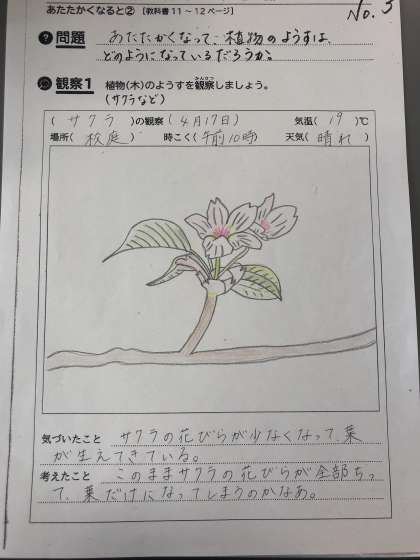 あたたかくなると② 【教科書11～12ページ】
No. 5
? 問題 あたたかくなって、植物のようすは、
どのようになっているだろうか。
観察1 植物(木)のようすを観察しましょう。
かんさつ
(サクラなど)
( サクラ )の観察 ( 4月17日 ) 気温( 19 )℃
場所( 校庭 ) 時こく( 午前10時 ) 天気( 晴れ )
気づいたこと サクラの花びらが少なくなって、葉
が生えてきている。
考えたこと このままサクラの花びらが全部ちっ
て、葉だけになってしまうのかなあ。